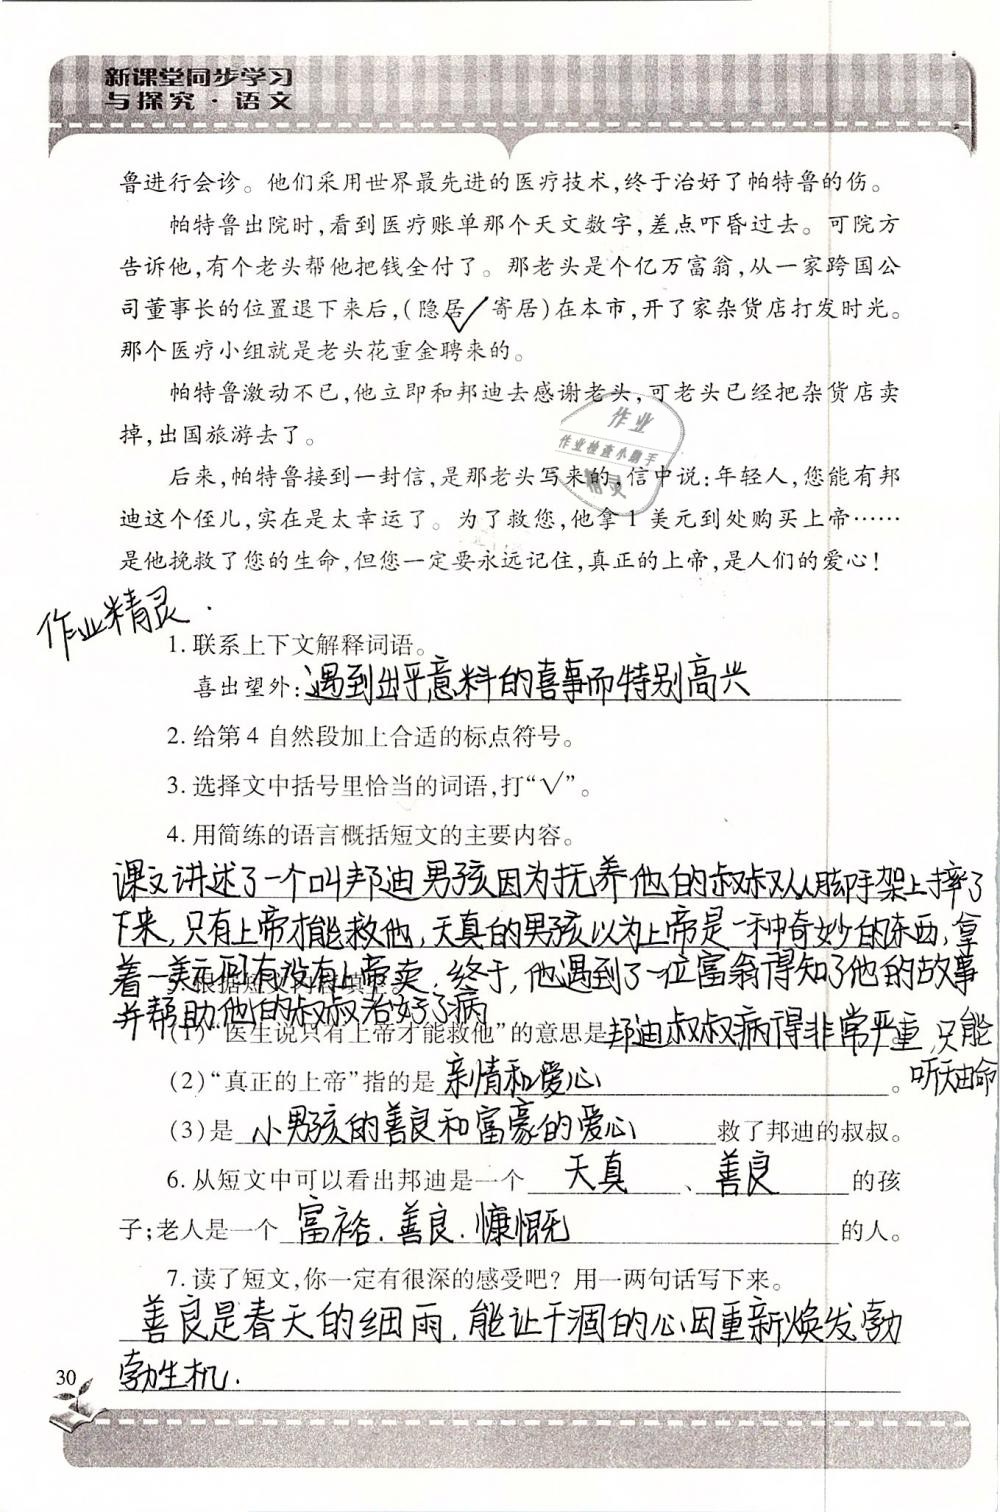 新课堂同步学习
与探究·语文
鲁进行会诊。他们采用世界最先进的医疗技术,终于治好了帕特鲁的伤。
帕特鲁出院时,看到医疗账单那个天文数字,差点吓昏过去。可院方
告诉他,有个老头帮他把钱全付了。那老头是个亿万富翁,从一家跨国公
司董事长的位置退下来后,(隐居√ 寄居)在本市,开了家杂货店打发时光。
那个医疗小组就是老头花重金聘来的。
帕特鲁激动不已,他立即和邦迪去感谢老头,可老头已经把杂货店卖
掉,出国旅游去了。
作业
作业检查小助手
精灵
后来,帕特鲁接到一封信,是那老头写来的,信中说:年轻人,您能有邦
迪这个侄儿,实在是太幸运了。为了救您,他拿1美元到处购买上帝……
是他挽救了您的生命,但您一定要永远记住,真正的上帝,是人们的爱心!
作业精灵.
1.联系上下文解释词语。
喜出望外:遇到出乎意料的喜事而特别高兴
2.给第4自然段加上合适的标点符号。
3.选择文中括号里恰当的词语,打“√”。
4.用简练的语言概括短文的主要内容。
课文讲述了一个叫邦迪男孩因为抚养他的叔叔从脚手架上摔了
下来,只有上帝才能救他,天真的男孩以为上帝是一种奇妙的东西,拿
着一美元问有没有上帝卖.终于,他遇到了一位富翁得知了他的故事
5.根据短文内容填空。
并帮助他的叔叔治好了病
(1)“医生说只有上帝才能救他”的意思是邦迪叔叔病得非常严重,只能
听天由命
(2)“真正的上帝”指的是 亲情和爱心 。
(3)是 小男孩的善良和富豪的爱心 救了邦迪的叔叔。
6.从短文中可以看出邦迪是一个 天真 、 善良 的孩
子;老人是一个 富裕.善良.慷慨 的人。
7.读了短文,你一定有很深的感受吧?用一两句话写下来。
善良是春天的细雨,能让干涸的心因重新焕发勃
勃生机.
30